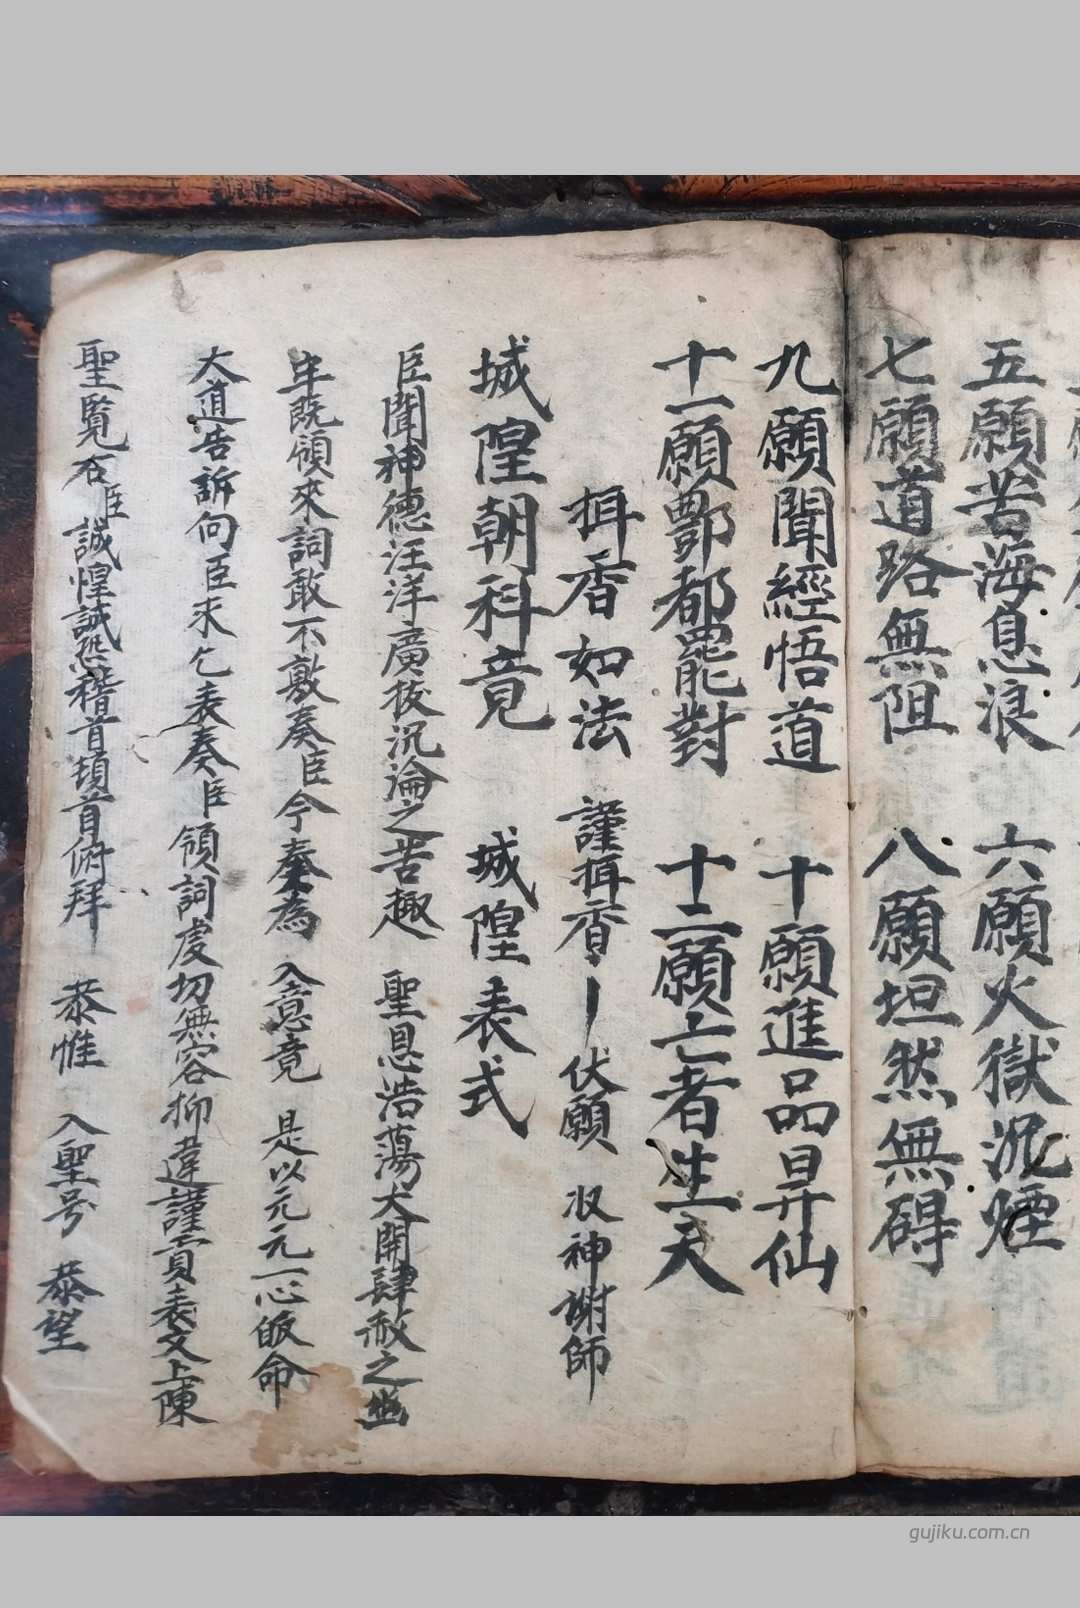 五願苦海息浪 六願火獄沉煙
七願道路無阻 八願坦然無碍
九願聞經悟道 十願進品昇仙
十一願酆都罷對 十二願亡者生天
揖香如法 謹揖香 伏願 収神謝師
城隍朝科竟 城隍表式
臣聞神德汪洋廣拔沉淪之苦趣 聖恩浩蕩大開肆赦之
年既領來詞敢不敷奏臣今奏為 入意竟 是以元元一心皈命
大道告訴向臣求乞表奏臣領詞虔切無容抑違謹賫表文上陳
聖覧臣誠惶誠恐稽首頓首俯拜 恭惟 入聖号 恭望
gujiku.com.cn